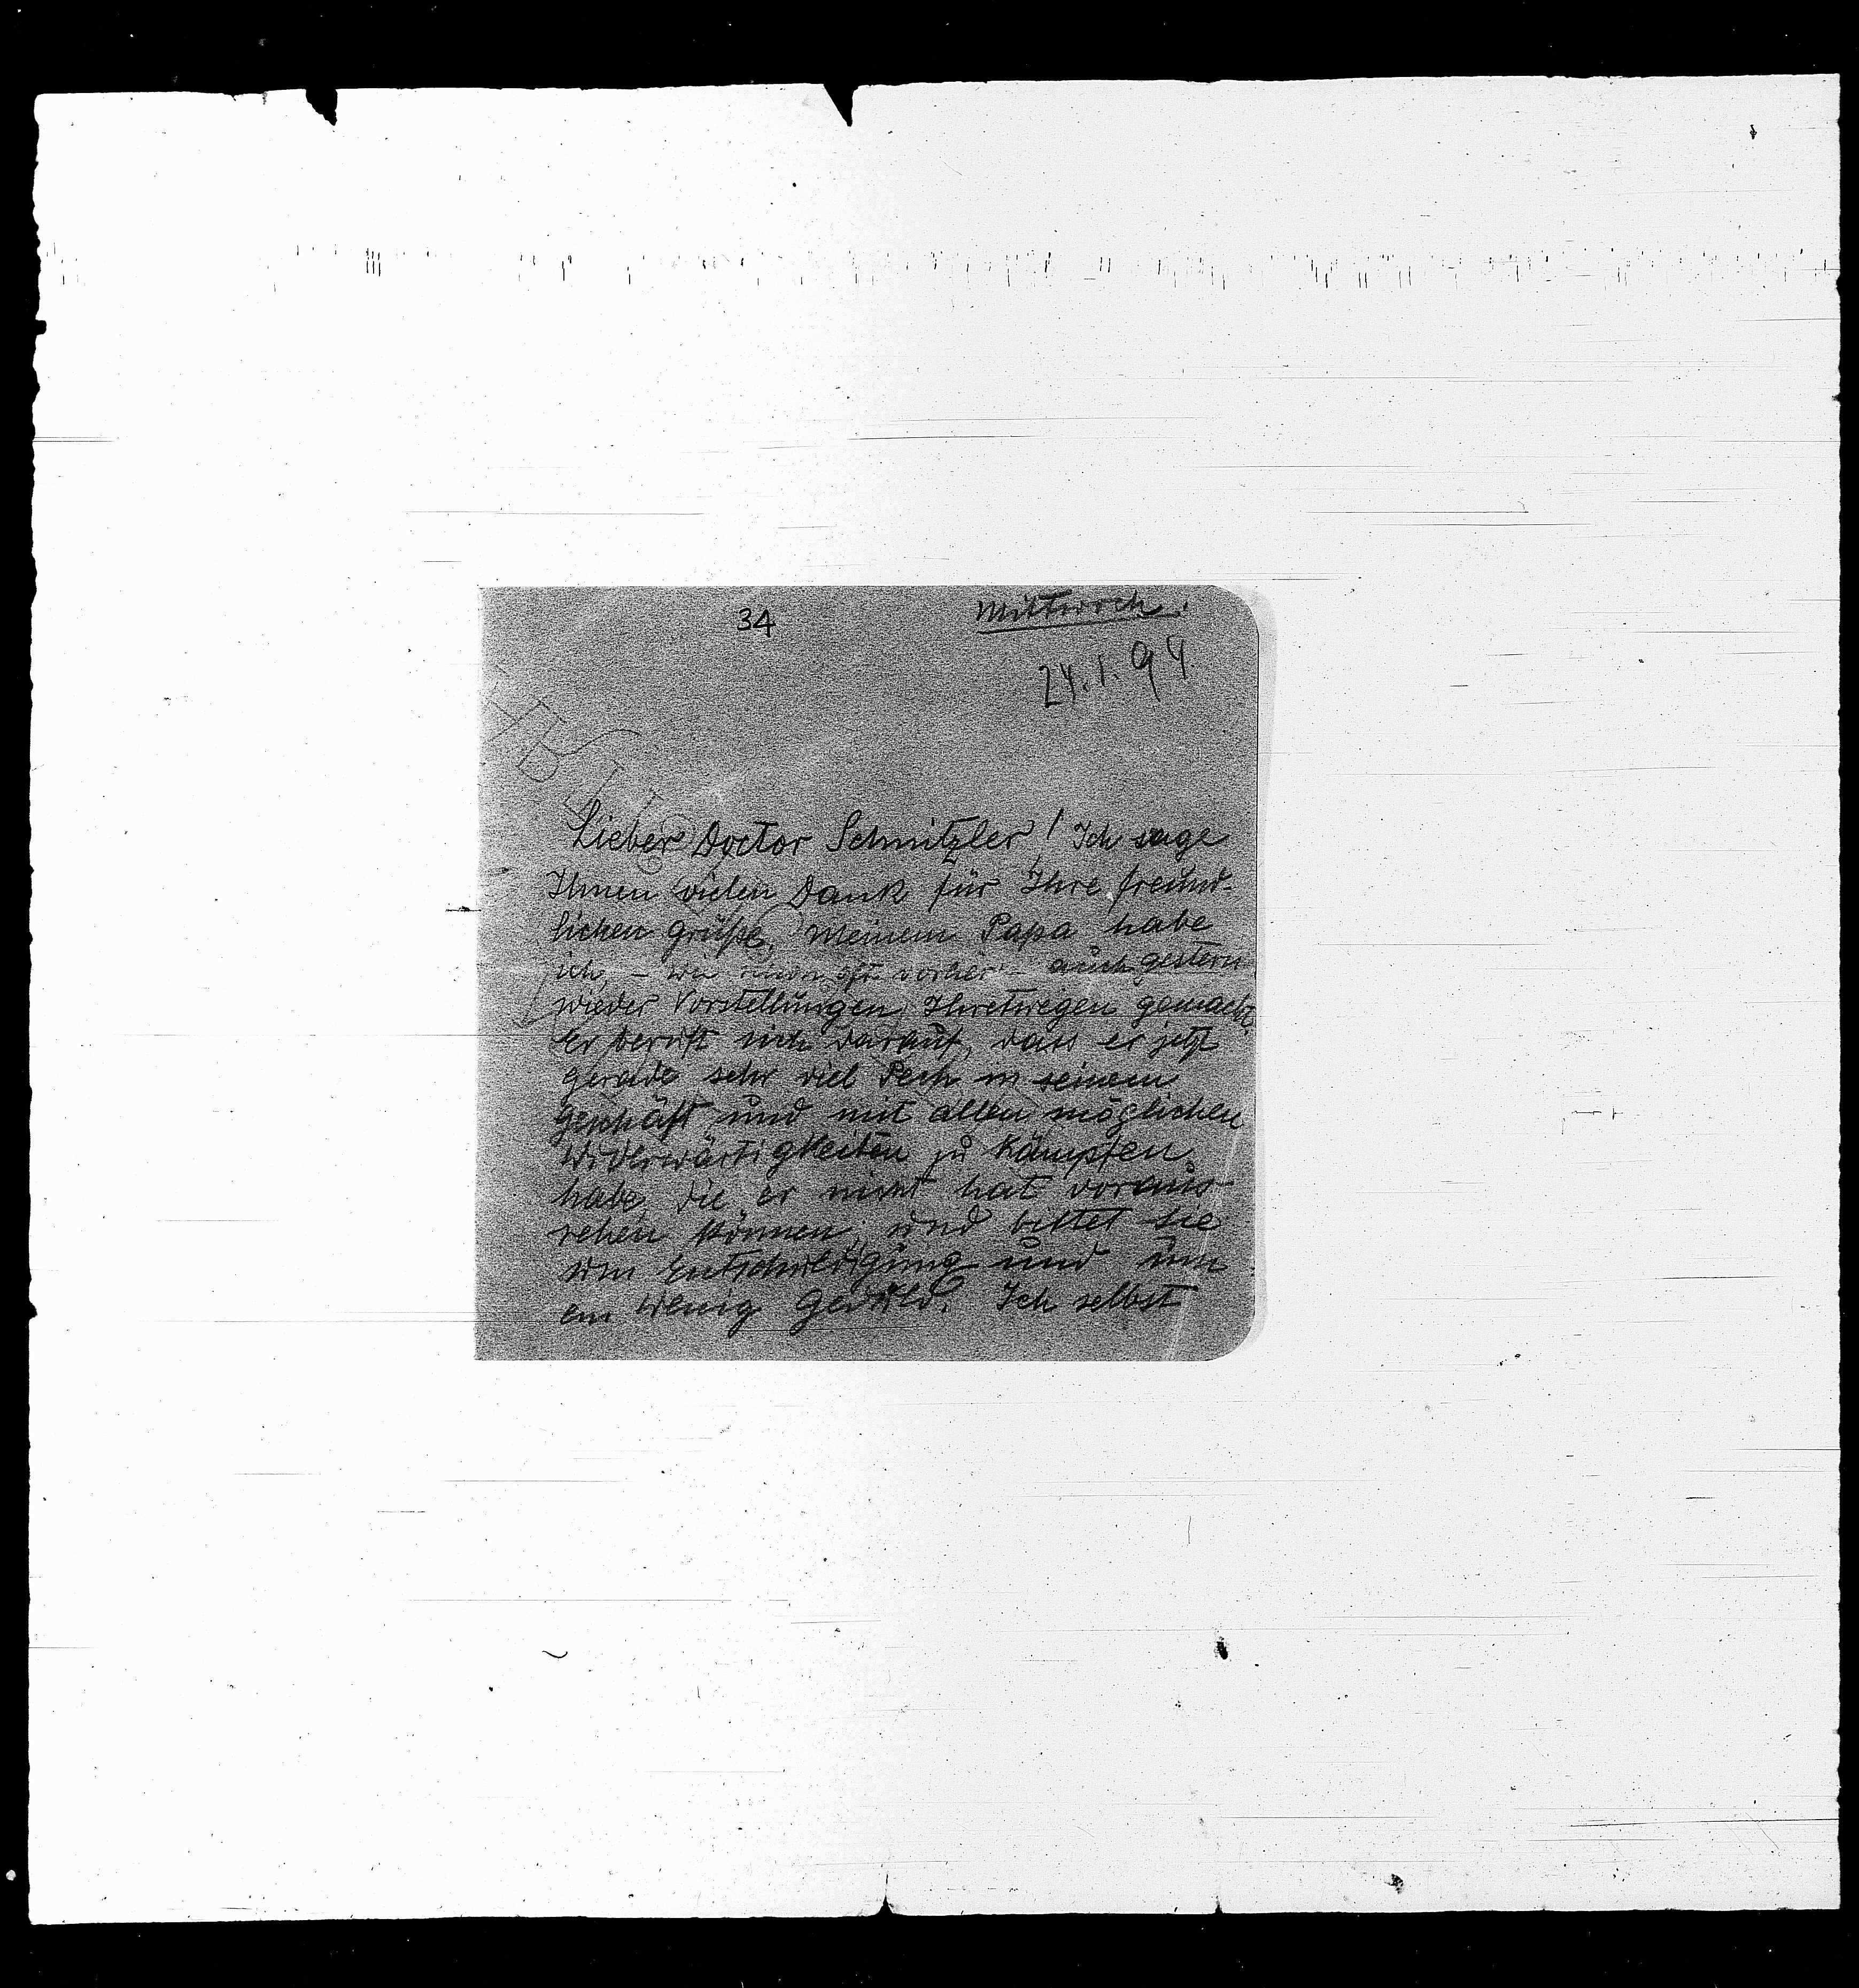 34
Mittwoch.
24.1.94
Lieber Doctor Schnitzler! Ich sage
Ihnen vielen Dank für Ihre freund-
lichen Grüße. Meinem Papa habe
ich, – wie schon oft vorher – auch gestern
wieder Vorstellungen Ihretwegen gemacht.
Er beruft sich darauf, dass er jetzt
gerade sehr viel Pech in seinem
Geschäft und mit allen möglichen
Widerwärtigkeiten zu kämpfen
habe, die er nicht hat voraus-
sehen können, und bittet Sie
um Entschuldigung und um
ein wenig Geduld. Ich selbst